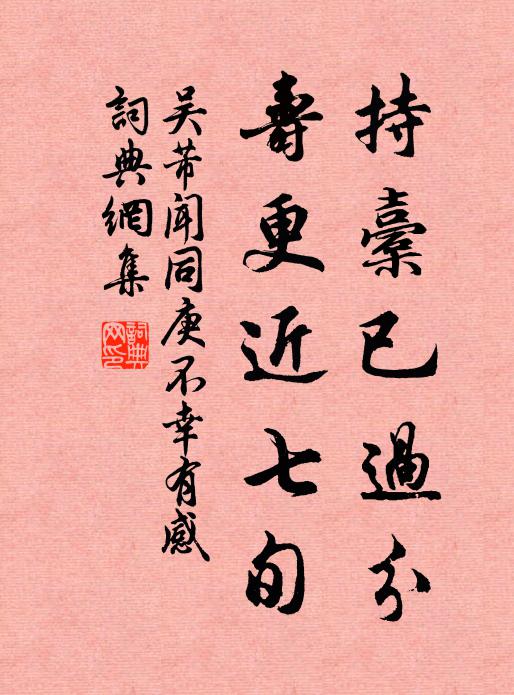 持橐已過分
壽更近七旬
吴芾聞同庚不幸有感
詞典網集
詞典
网印